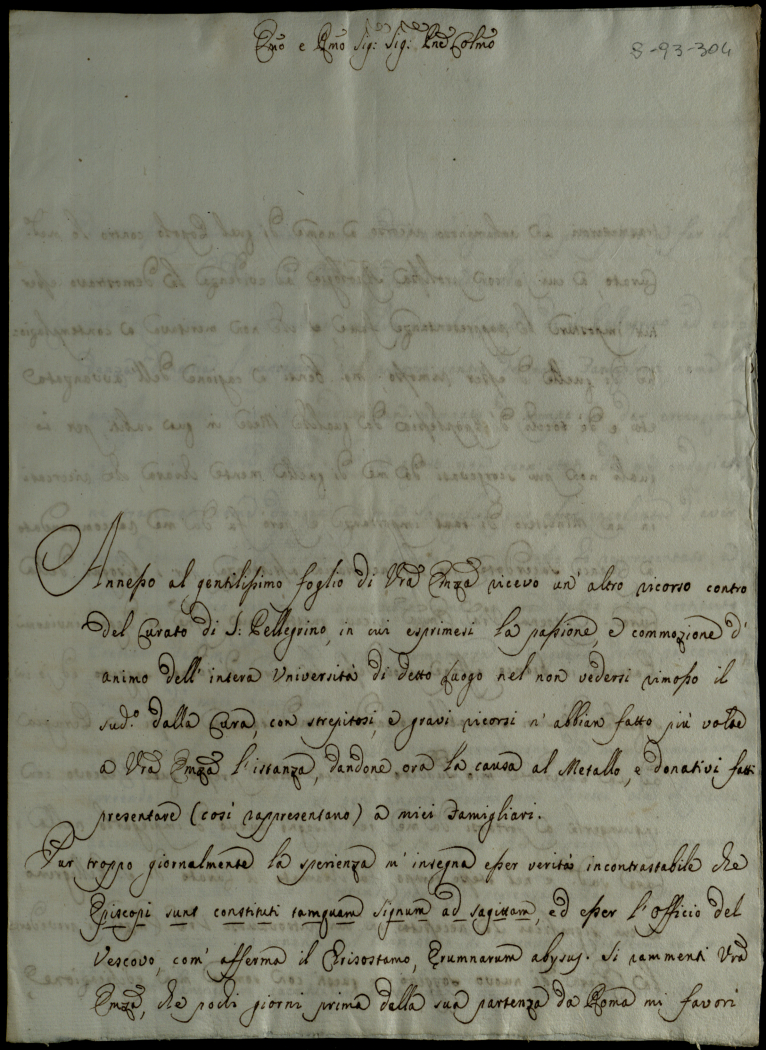 Emo e Rmo Sig: Sig: Pne Colmo
S-93-304
Annesso al gentilissimo foglio di Vra Emza ricevo un' altro ricorso contro
del Curato di S: Pellegrino, in cui esprimesi la passione, e commozione d'
animo dell' intera Università di detto Luogo nel non vedersi rimosso il
sud.o dalla Cura, con strepitosi, e gravi ricorsi n' abbian fatto più volte
a Vra Emza l' istanza, dandone ora la causa al Metallo, e donativi fatti
presentare (così rappresentano) a miei Famigliari.
Pur troppo giornalmente la sperienza m' insegna esser verità incontrastabile che
Episcopi sunt constituti tamquam signum ad sagittam, ed esser l' officio del
Vescovo, com' afferma il Crisostamo, Erumnarum abysus. Si rammenti Vra
Emza, che pochi giorni prima dalla sua partenza da Roma mi favorì